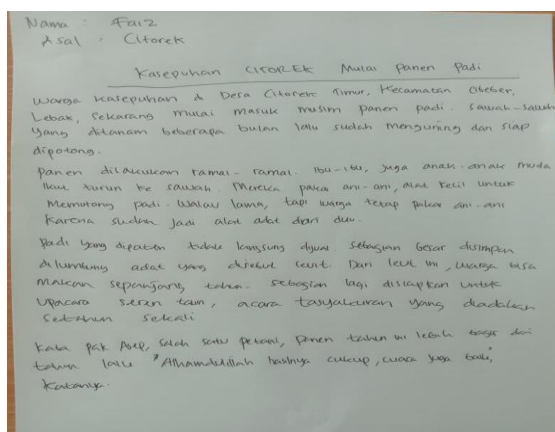 Nama : Faiz
Asal : Citorek
Kasepuhan CITOREK Mulai Panen Padi
Warga Kasepuhan di Desa Citorek Timur, Kecamatan Cibeber,
Lebak, Sekarang mulai masuk musim panen padi. Sawah-sawah
yang ditanam beberapa bulan lalu sudah menguning dan siap
dipotong.
Panen dilakukan ramai-ramai. Ibu-ibu, juga anak-anak muda
ikut turun ke sawah. Mereka pakai ani-ani, alat kecil untuk
memotong padi. Walau lama, tapi warga tetap pakai ani-ani
karena sudah jadi alat adat dari dulu.
Padi yang dipanen tidak langsung dijual sebagian besar disimpan
di lumbung adat yang disebut leuit. Dari leuit ini, warga bisa
makan sepanjang tahun. Sebagian lagi disiapkan untuk
upacara seren taun, acara tasyakuran yang diadakan
setahun sekali
Kata pak Asep, salah satu petani, panen tahun ini lebih bagus dari
tahun lalu "Alhamdulillah hasilnya cukup, cuaca juga baik,
katanya.